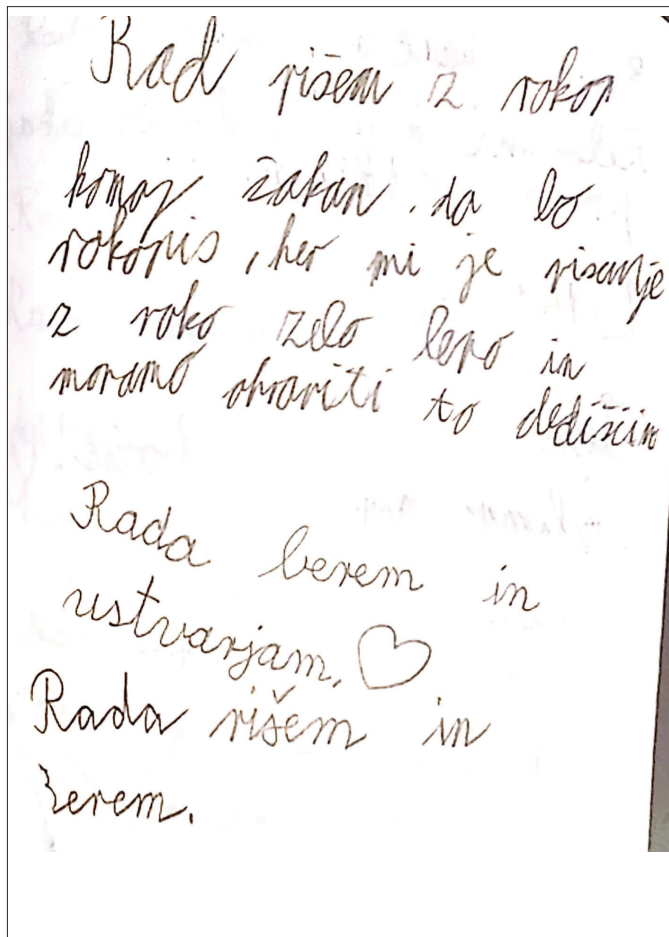 Rad pišem z roko
komaj čakan, da bo
rokopis, ker mi je pisanje
z roko zelo lepo in
moramo ohraniti to dediščino
Rada berem in
ustvarjam.
Rada rišem in
berem.